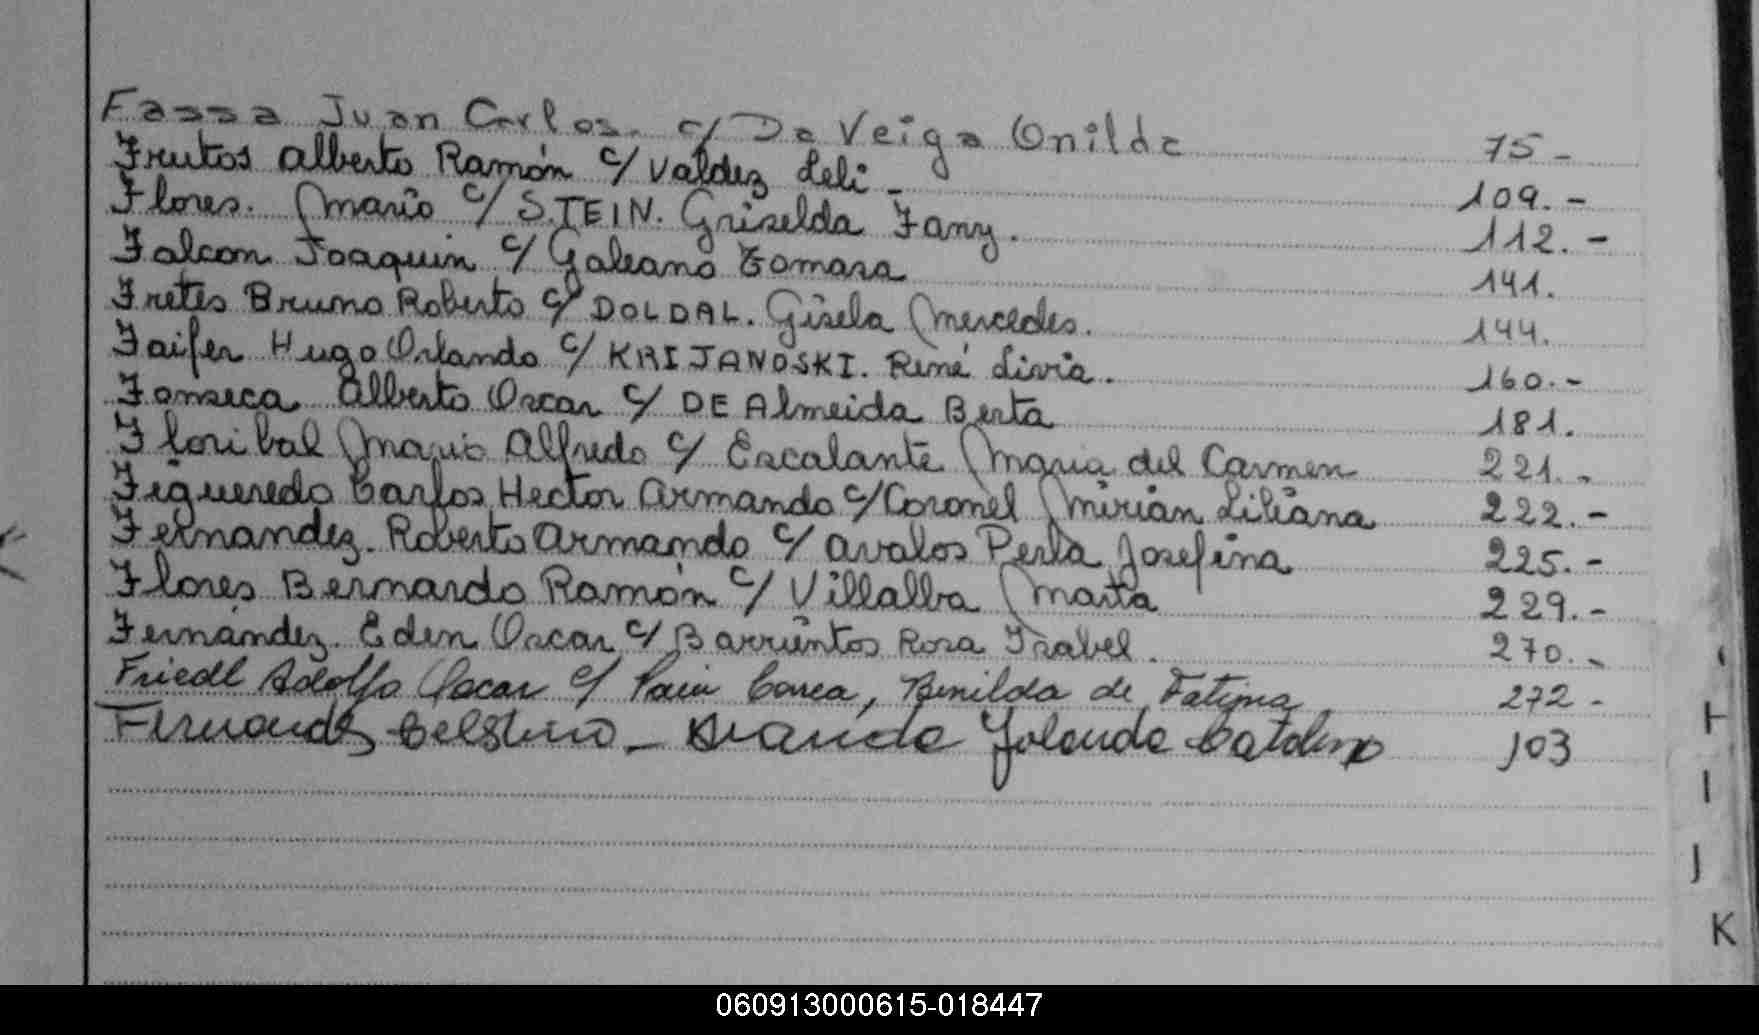 Fassa Juan Carlos. c/ Da Veiga Onilda 75 -
Frutos Alberto Ramón c/ Valdez Leli - 109. -
Flores. Mario c/ STEIN. Griselda Fany. 112. -
Falcon Joaquin c/ Galeano Tomasa 141.
Fretes Bruno Roberto c/ DOLDAL. Gisela Mercedes. 144.
Faifer Hugo Orlando c/ KRIJANOSKI. René Livia. 160. -
Fonseca Alberto Oscar c/ DE Almeida Berta 181.
Floribal Mario Alfredo c/ Escalante Maria del Carmen 221. -
Figueredo Carlos Hector Armando c/ Coronel Mirian Liliana 222. -
Fernandez. Roberto Armando c/ Avalos Perla Josefina 225. -
Flores Bernardo Ramón c/ Villalba Marta 229. -
Fernández. Eden Oscar c/ Barrientos Rosa Isabel. 270. -
Friedl Adolfo Oscar c/ Benilda de Fatima 272 -
Fernandez Celestino - Yolanda Catalina 103
H
I
J
K
060913000615-018447